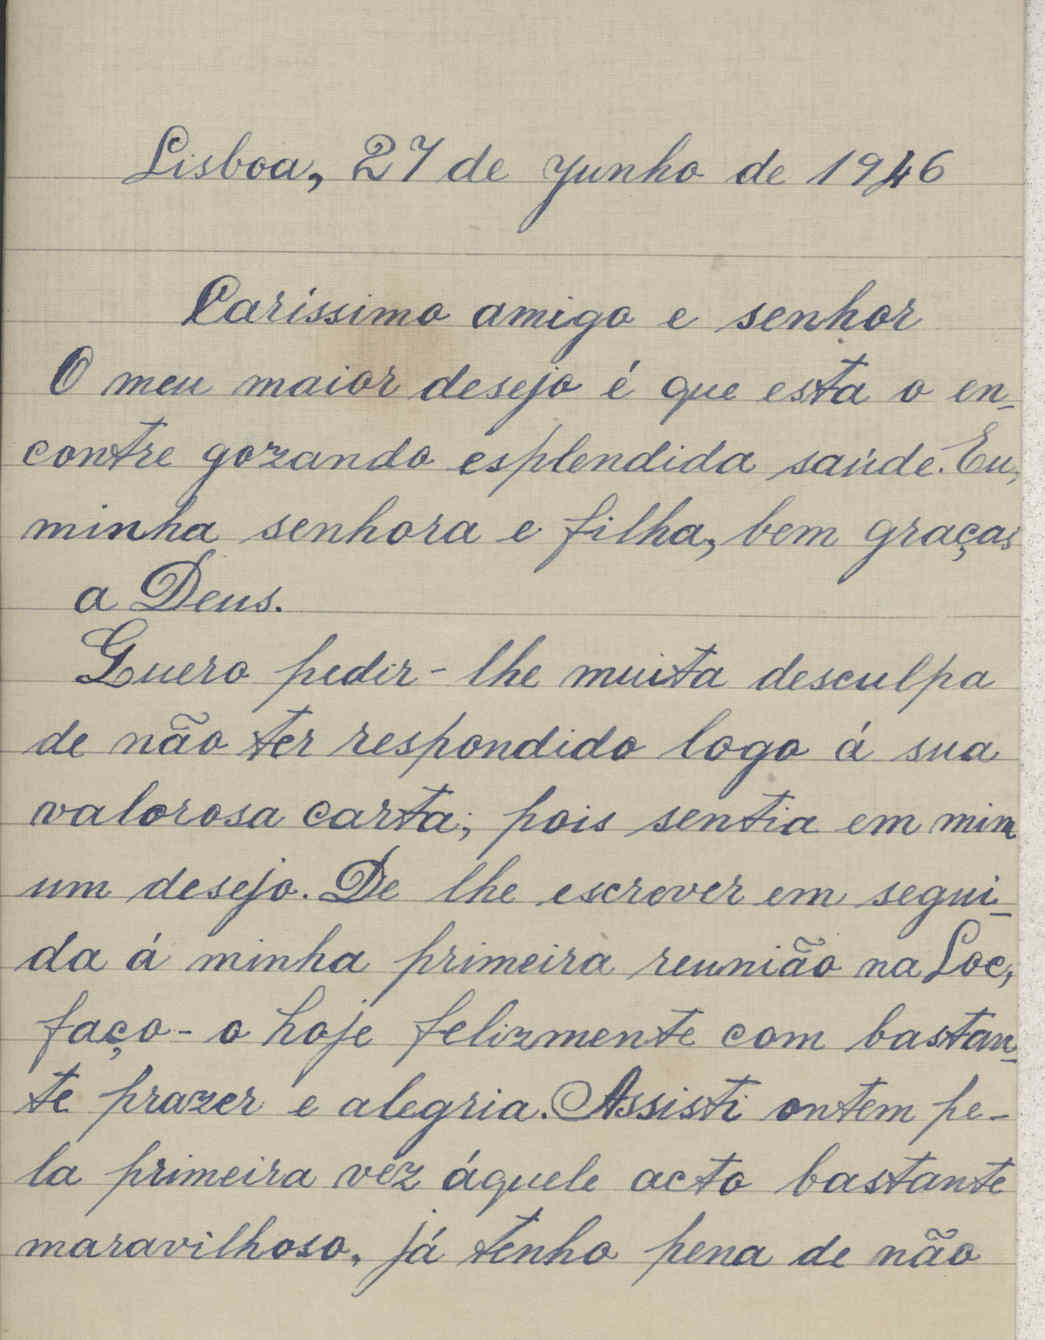 Lisboa, 27 de Junho de 1946
Caríssimo amigo e senhor
O meu maior desejo é que esta o en-
contre gozando esplendida saúde. Eu,
minha senhora e filha, bem graças
a Deus.
Quero pedir-lhe muita desculpa
de não ter respondido logo á sua
valorosa carta; pois sentia em mim
um desejo. De lhe escrever em segui-
da á minha primeira reunião na Loc,
faço-o hoje felizmente com bastan-
te prazer e alegria. Assisti ontem pe-
la primeira vez áquele acto bastante
maravilhoso, já tenho pena de não